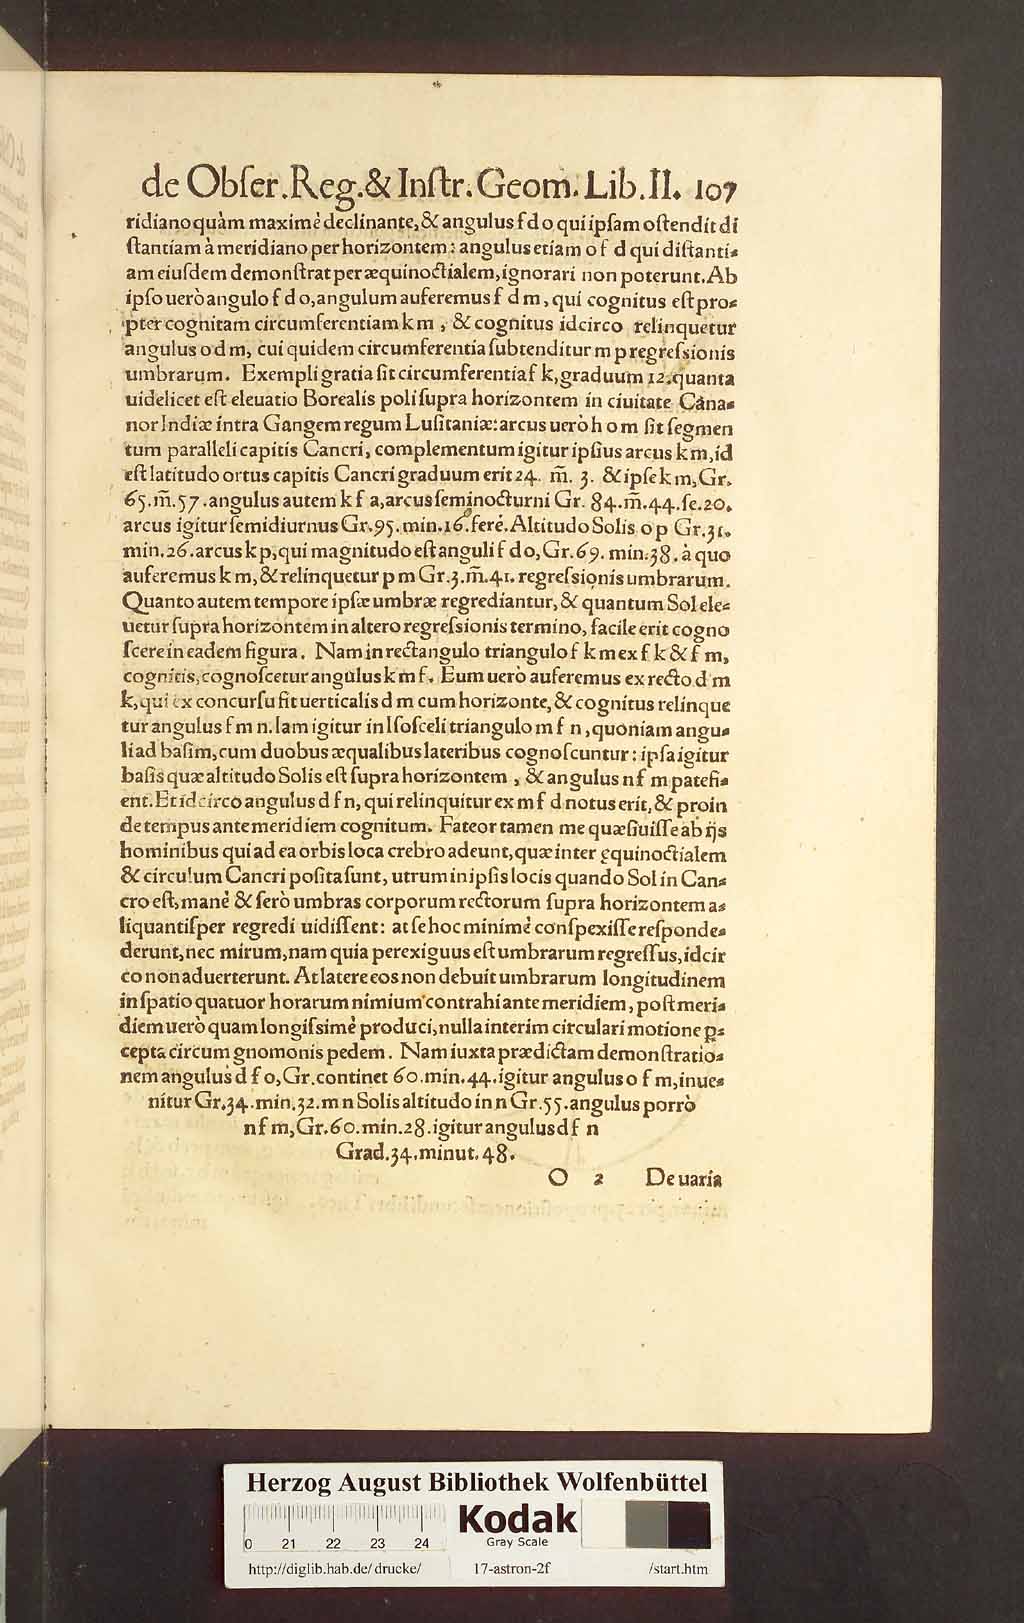 de Obſer. Reg. & Inſtr. Geom. Lib. II. 107
ridiano quàm maximè declinante, & angulus f d o qui ipſam oſtendit di
ſtantiam à meridiano per horizontem: angulus etiam o f d qui diſtanti-
am eiuſdem demonſtrat per æquinoctialem, ignorari non poterunt. Ab
ipſo uerò angulo f d o, angulum auferemus f d m, qui cognitus eſt pro-
pter cognitam circumferentiam k m, & cognitus idcirco relinquetur
angulus o d m, cui quidem circumferentia ſubtenditur m p regreſsionis
umbrarum. Exempli gratia ſit circumferentia f k, graduum 12. quanta
uidelicet eſt eleuatio Borealis poli ſupra horizontem in ciuitate Cana-
nor Indiæ intra Gangem regum Luſitaniæ: arcus uerò h o m ſit ſegmen
tum paralleli capitis Cancri, complementum igitur ipſius arcus k m, id
eſt latitudo ortus capitis Cancri graduum erit 24. m̃. 3. & ipſe k m, Gr.
65. m̃. 57. angulus autem k f a, arcus ſeminocturni Gr. 84. m̃. 44. ſe. 20.
arcus igitur ſemidiurnus Gr. 95. min. 16. ferè. Altitudo Solis o p Gr. 31.
min. 26. arcus k p, qui magnitudo eſt anguli f d o, Gr. 69. min. 38. à quo
auferemus k m, & relinquetur p m Gr. 3. m̃. 41. regreſsionis umbrarum.
Quanto autem tempore ipſæ umbræ regrediantur, & quantum Sol ele-
uetur ſupra horizontem in altero regreſsionis termino, facile erit cogno
ſcere in eadem figura. Nam in rectangulo triangulo f k m ex f k & f m,
cognitis, cognoſcetur angulus k m f. Eum uerò auferemus ex recto d m
k, qui ex concurſu fit uerticalis d m cum horizonte, & cognitus relinque
tur angulus f m n. Iam igitur in Iſoſceli triangulo m f n, quoniam angu-
li ad baſim, cum duobus æqualibus lateribus cognoſcuntur: ipſa igitur
baſis quæ altitudo Solis eſt ſupra horizontem, & angulus n f m patefi-
ent. Et idcirco angulus d f n, qui relinquitur ex m f d notus erit, & proin
de tempus ante meridiem cognitum. Fateor tamen me quæſiuiſſe ab ijs
hominibus qui ad ea orbis loca crebro adeunt, quæ inter ęquinoctialem
& circulum Cancri poſita ſunt, utrum in ipſis locis quando Sol in Can-
cro eſt, manè & ſerò umbras corporum rectorum ſupra horizontem a-
liquantiſper regredi uidiſſent: at ſe hoc minimè conſpexiſſe reſponde-
derunt, nec mirum, nam quia perexiguus eſt umbrarum regreſſus, idcir
co non aduerterunt. At latere eos non debuit umbrarum longitudinem
in ſpatio quatuor horarum nimium contrahi ante meridiem, poſt meri-
diem uerò quam longiſsimè produci, nulla interim circulari motione ꝑ-
cepta circum gnomonis pedem. Nam iuxta prædictam demonſtratio-
nem angulus d f o, Gr. continet 60. min. 44. igitur angulus o f m, inue-
nitur Gr. 34. min. 32. m n Solis altitudo in n Gr. 55. angulus porrò
n f m, Gr. 60. min. 28. igitur angulus d f n
Grad. 34. minut. 48.
O 2 De uaria
Herzog August Bibliothek Wolfenbüttel
0 21 22 23 24
Kodak
Gray Scale
http://diglib.hab.de/drucke/ 17-astron-2f /start.htm